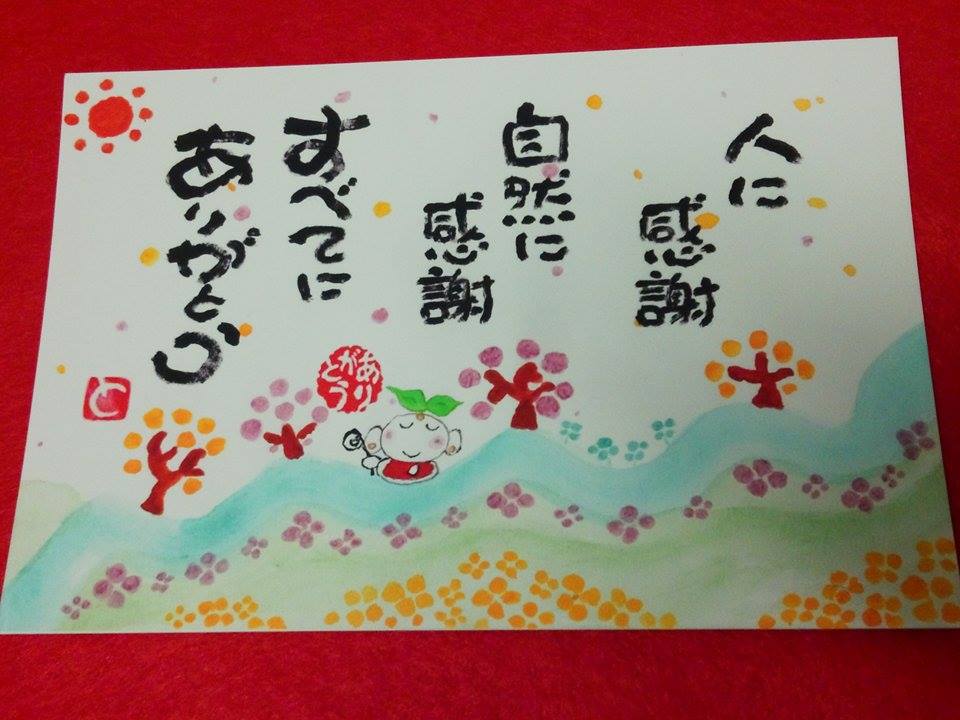 人に
感謝
自然に
感謝
すべてに
ありがとう
ありがとう
と